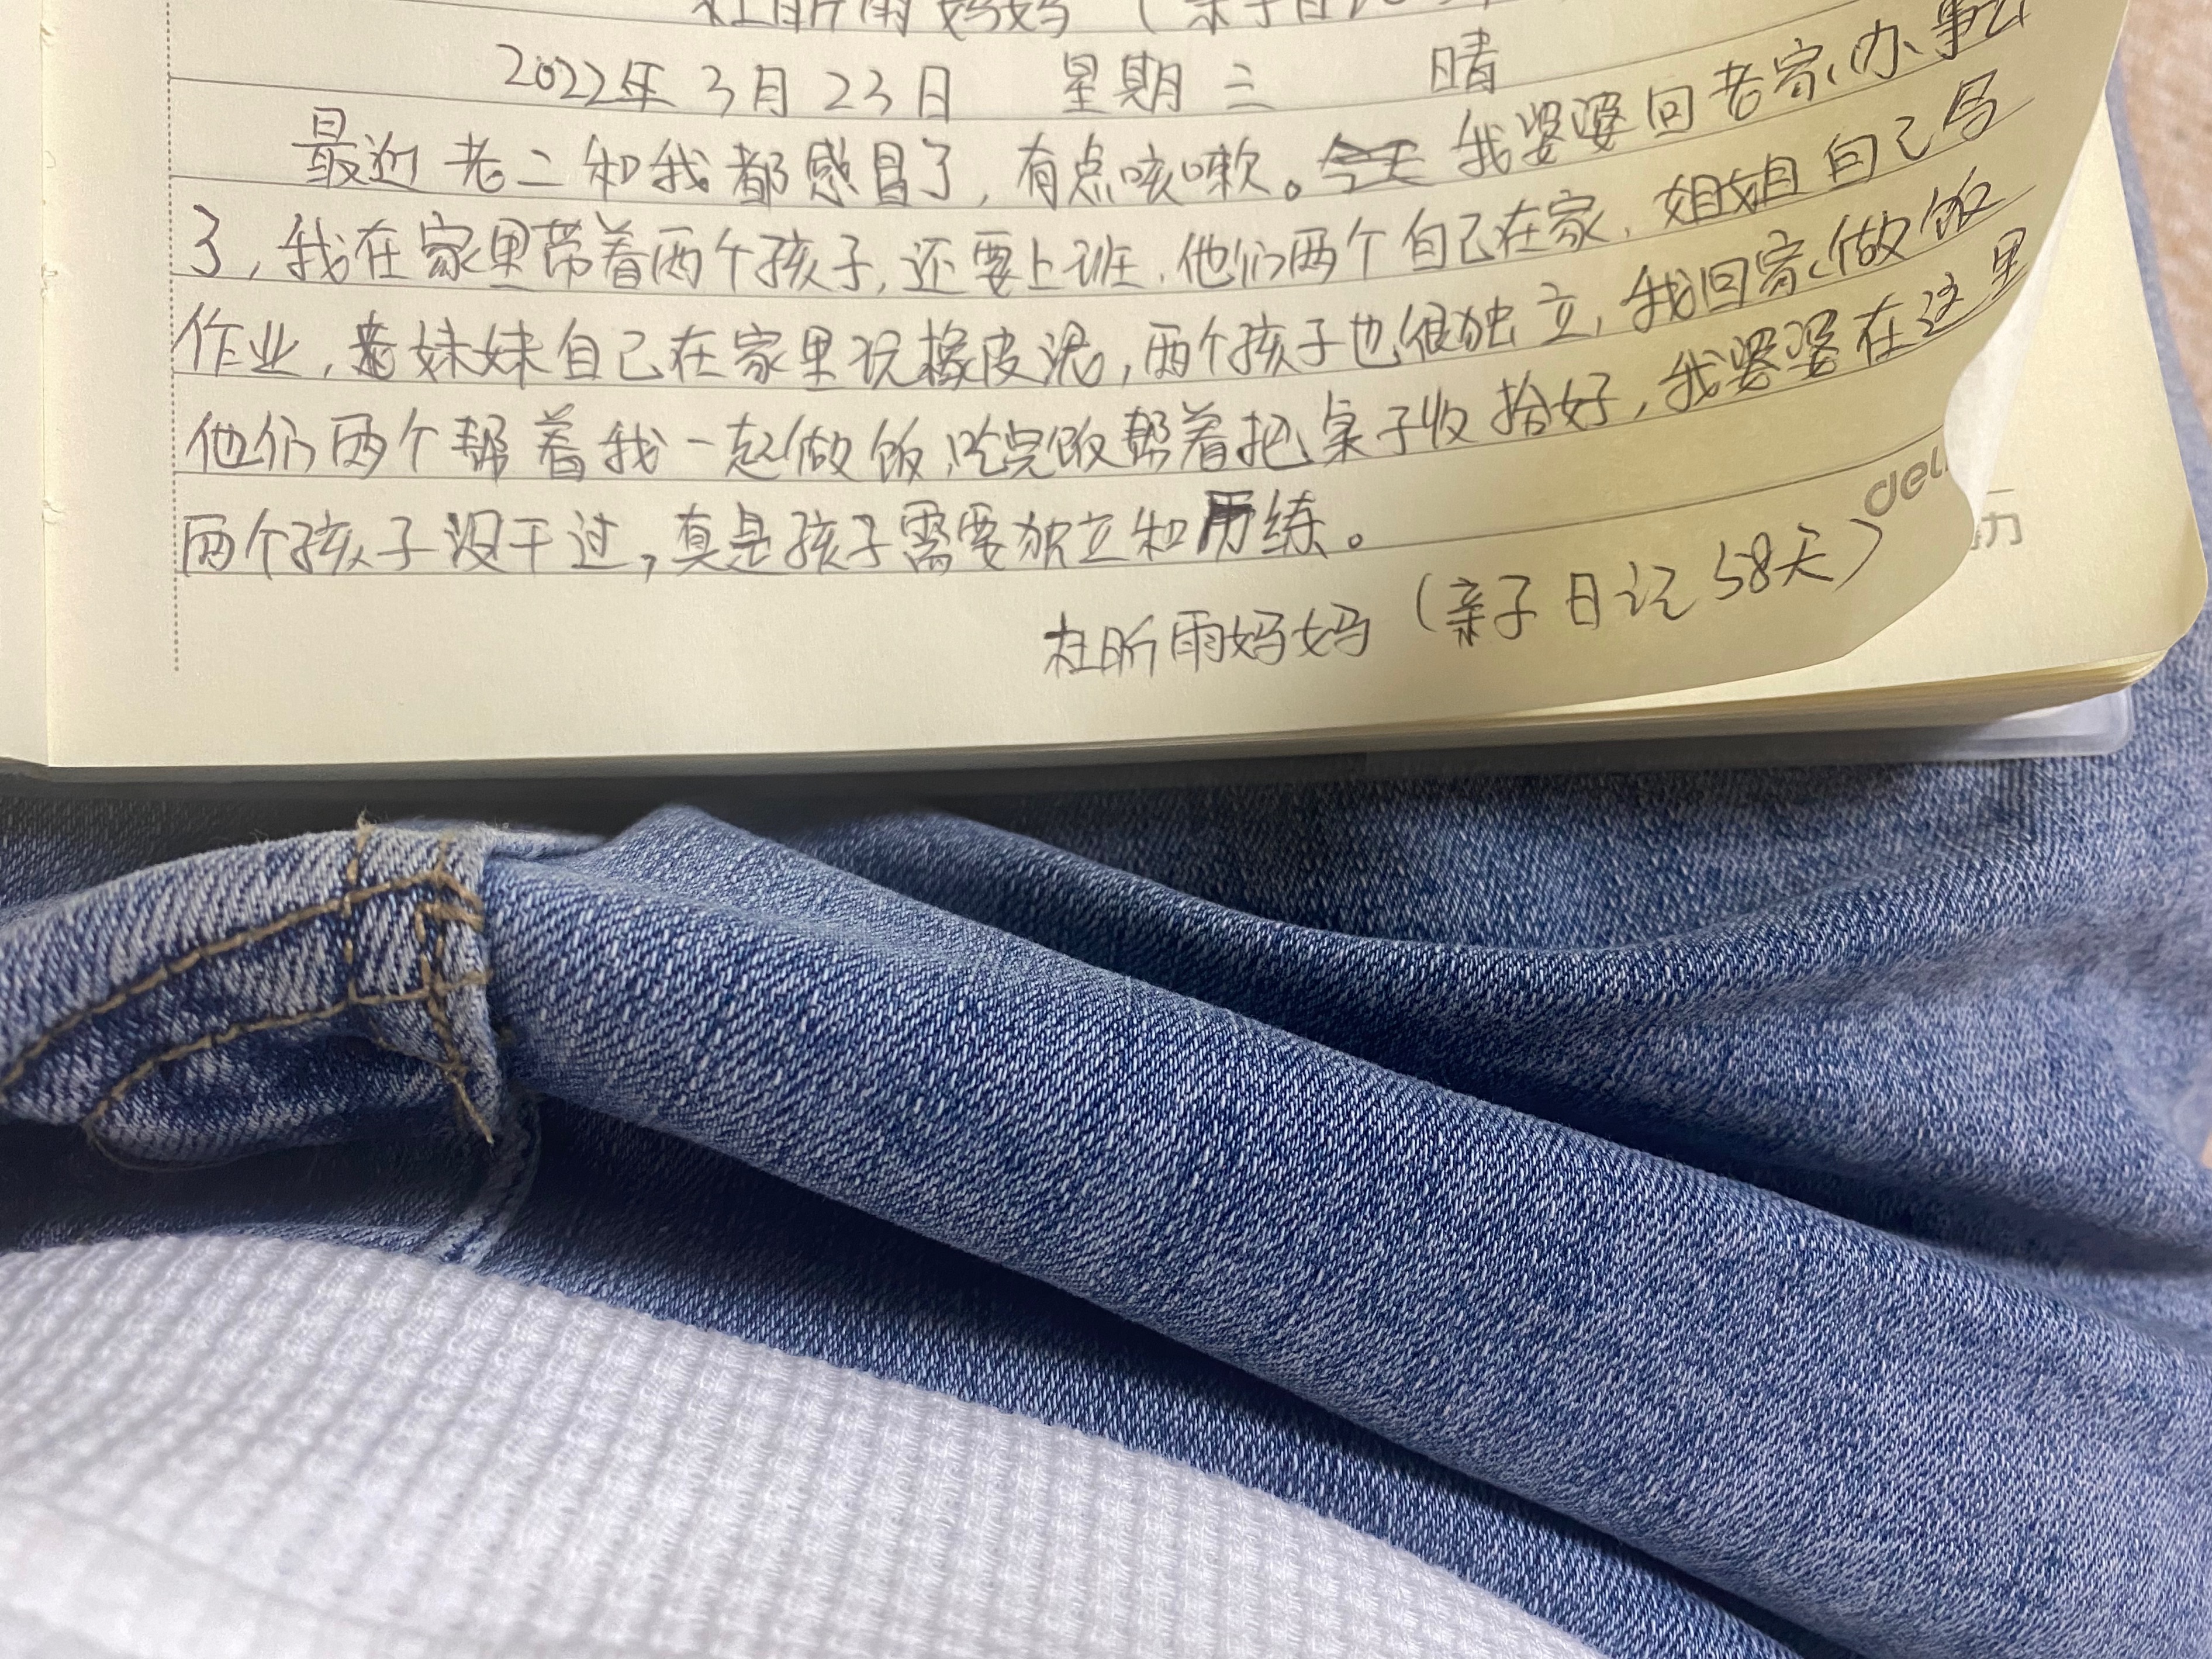 杜昕雨妈妈（亲子日记
2022年3月23日 星期三 晴
最近老二和我都感冒了，有点咳嗽。今天我婆婆回老家办事去
了，我在家里带着两个孩子，还要上班，他们两个自己在家，姐姐自己写
作业，妹妹自己在家里玩橡皮泥，两个孩子也很独立，我回家做饭
他们两个帮着我一起做饭，吃完饭帮着把桌子收拾好，我婆婆在这里
两个孩子没干过，真是孩子需要独立和历练。
deli
杜昕雨妈妈（亲子日记58天）